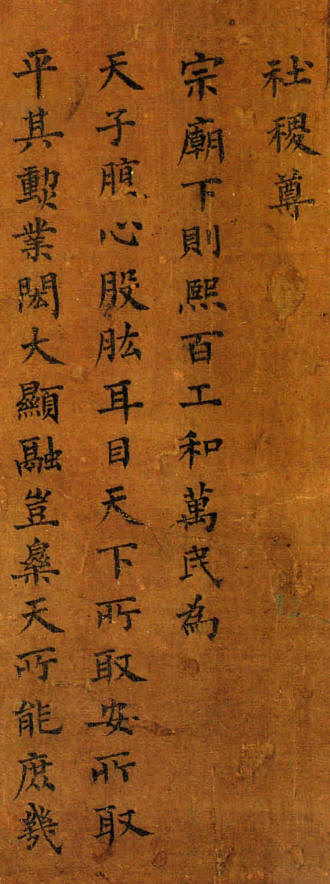 社稷尊
宗廟下則熙百工和萬民為
天子腹心股肱耳目天下所取安所取
平其勳業閎大顯融豈樂天所能庶幾